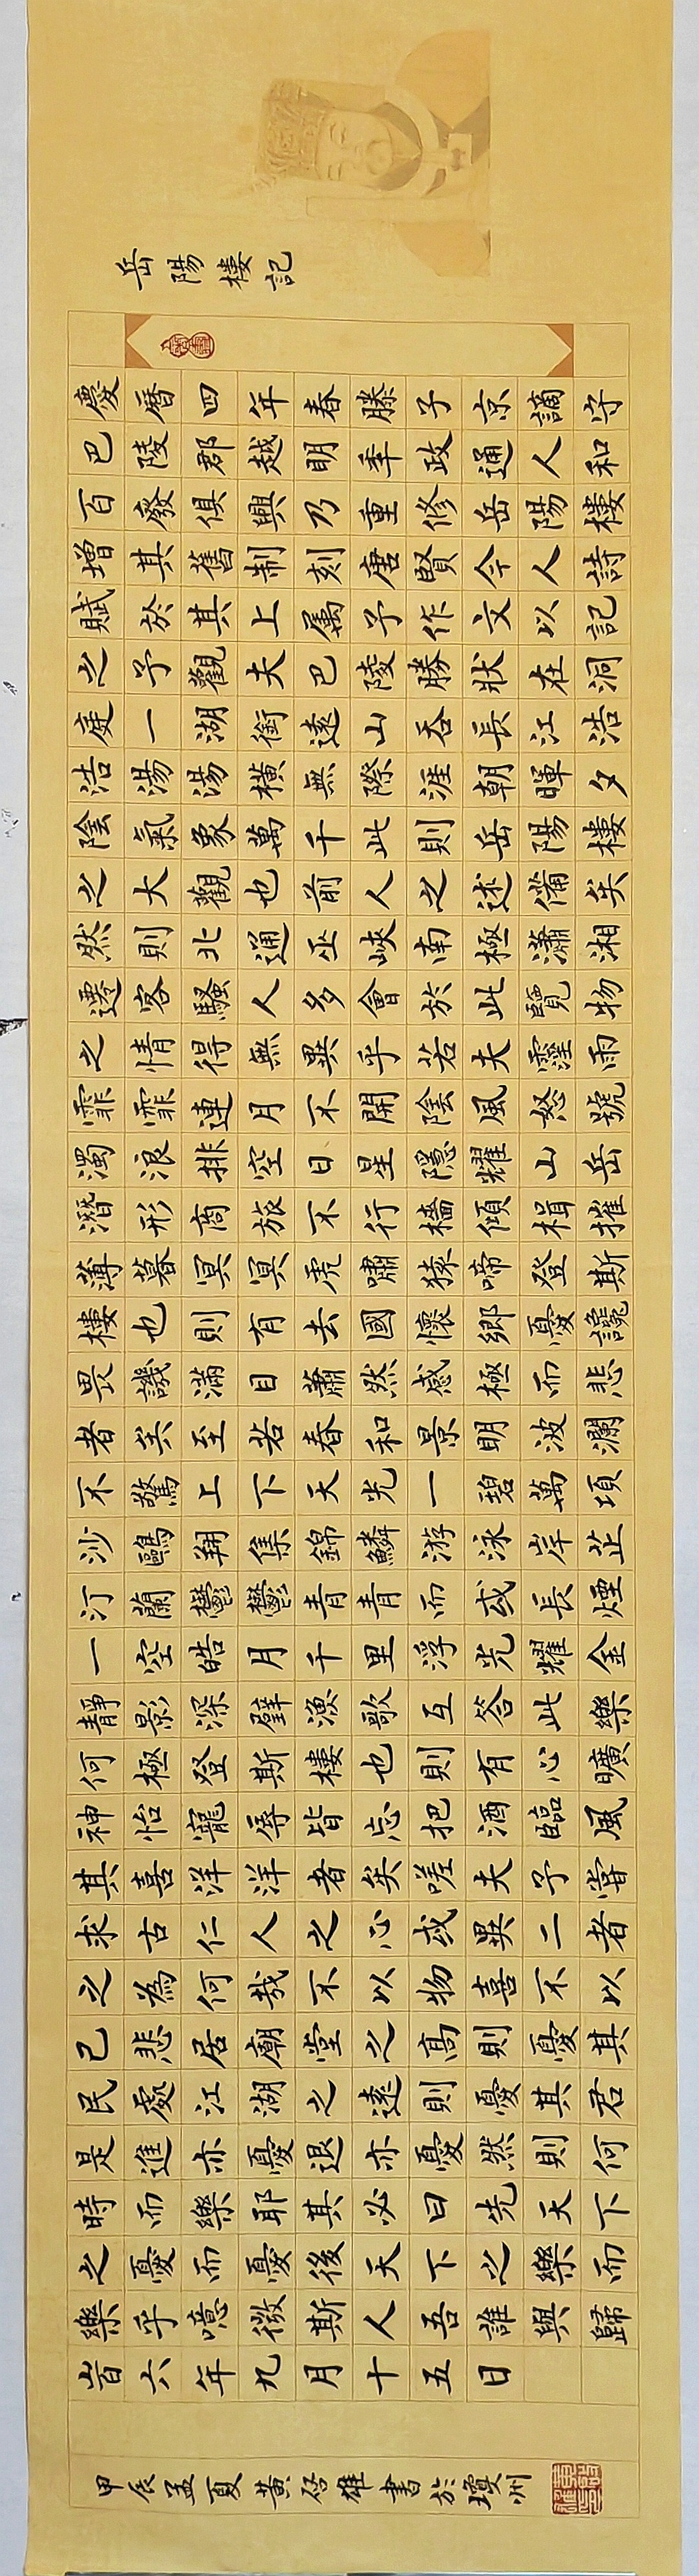 岳陽樓記
慶曆四年春滕子京謫守
巴陵郡越明秊政通人和
百廢俱興乃重修岳陽樓
增其舊制刻唐賢今人詩
賦於其上属予作文以記
之予觀夫巴陵勝狀在洞
庭一湖銜遠山吞長江浩
浩湯湯橫無際涯朝暉夕
陰氣象萬千此則岳陽樓
之大觀也前人之述備矣
然則北通巫峽南極瀟湘
遷客騷人多會於此覽物
之情得無異乎若夫霪雨
霏霏連月不開陰風怒號
濁浪排空日星隱耀山岳
潛形商旅不行檣傾楫摧
薄暮冥冥虎嘯猿啼登斯
樓也則有去國懷鄉憂讒
畏譏滿目蕭然感極而悲
者矣至若春和景明波瀾
不驚上下天光一碧萬頃
沙鷗翔集錦鱗游泳岸芷
汀蘭鬱鬱青青而或長煙
一空皓月千里浮光耀金
靜影深璧漁歌互答此樂
何極登斯樓也則有心曠
神怡寵辱皆忘把酒臨風
其喜洋洋者矣嗟夫予嘗
求古仁人之心或異二者
之為何哉不以物喜不以
己悲居廟堂之高則憂其
民處江湖之遠則憂其君
是進亦憂退亦憂然則何
時而樂耶其必曰先天下
之憂而憂後天下之樂而
樂乎噫微斯人吾誰與歸
峕六年九月十五日
甲辰孟夏黃啓雄書於瓊州